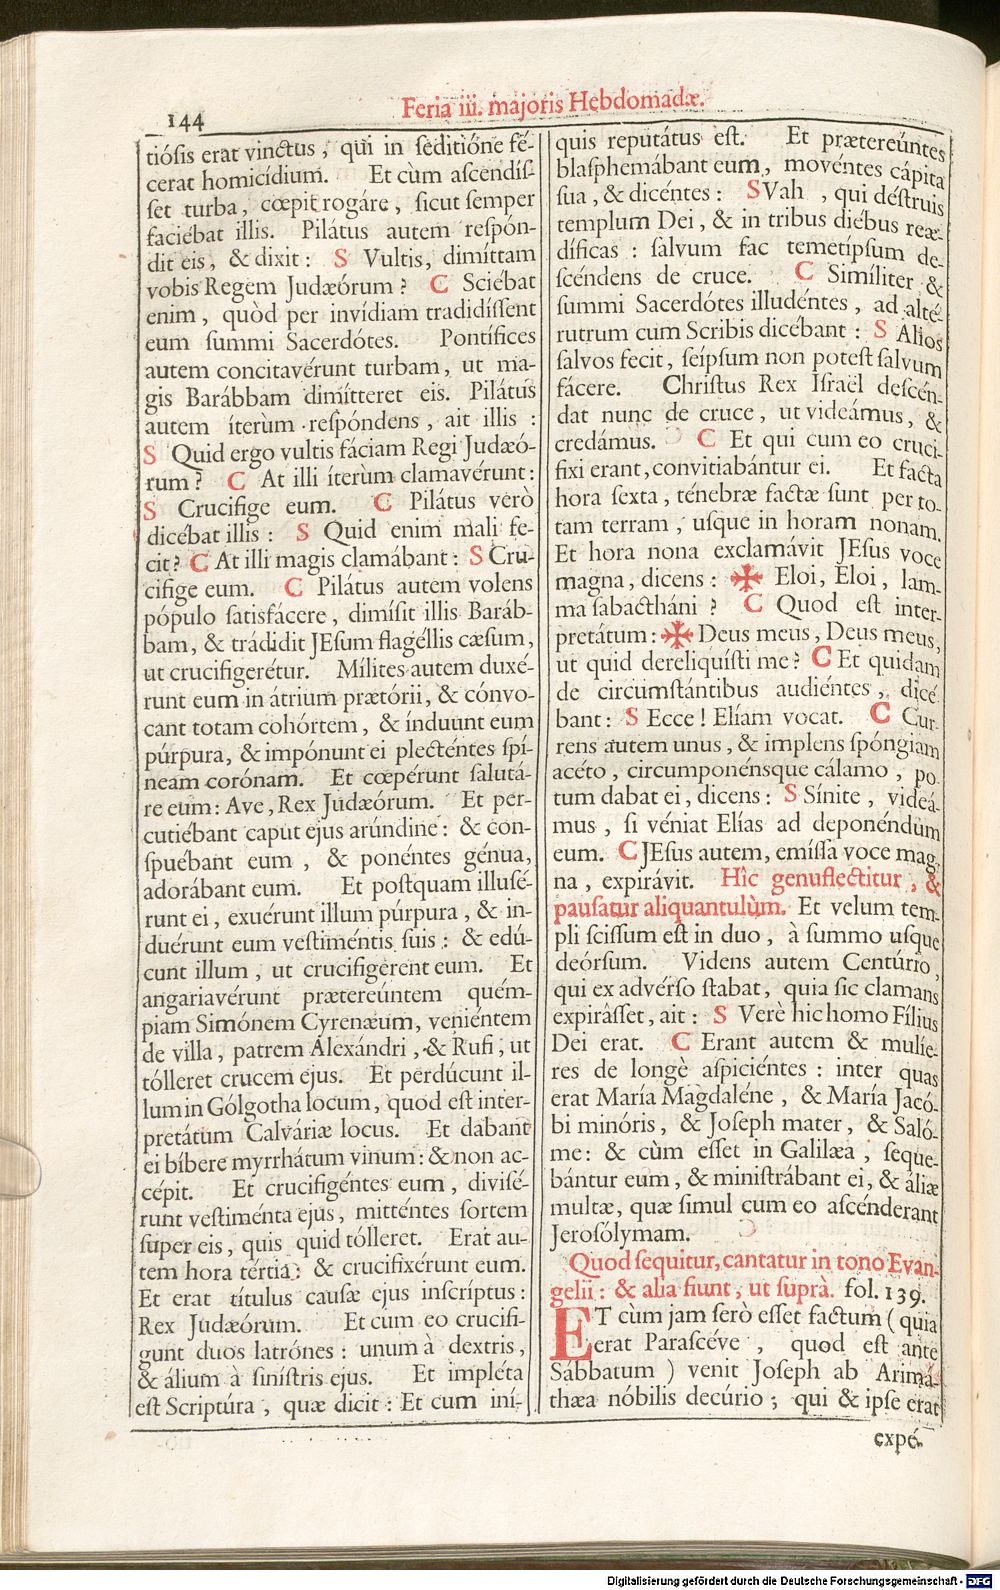 144
Feria iii. majoris Hebdomadæ.
tiósis erat vinctus, qui in seditióne fé-
cerat homicídium. Et cùm ascendís-
set turba, cœpit rogáre, sicut semper
faciébat illis. Pilátus autem respón-
dit eis, & dixit: S Vultis, dimíttam
vobis Regem Judæórum? C Sciébat
enim, quòd per invídiam tradidíssent
eum summi Sacerdótes. Pontífices
autem concitavérunt turbam, ut ma-
gis Barábbam dimítteret eis. Pilátus
autem íterùm respóndens, ait illis:
S Quid ergo vultis fáciam Regi Judæó-
rum? C At illi íterùm clamavérunt:
S Crucifige eum. C Pilátus verò
dicébat illis: S Quid enim mali fe-
cit? C At illi magis clamábant: S Cru-
cifige eum. C Pilátus autem volens
pópulo satisfácere, dimísit illis Baráb-
bam, & trádidit JEsum flagéllis cæsum,
ut crucifigerétur. Mílites autem duxé-
runt eum in átrium prætórii, & cónvo-
cant totam cohórtem, & índuunt eum
púrpura, & impónunt ei plecténtes spí-
neam corónam. Et cœpérunt salutá-
re eum: Ave, Rex Judæórum. Et per-
cutiébant caput ejus arúndine: & con-
spuébant eum, & ponéntes génua,
adorábant eum. Et postquam illusé-
runt ei, exuérunt illum púrpura, & in-
duérunt eum vestiméntis suis: & edú-
cunt illum, ut crucifigerent eum. Et
angariavérunt prætereúntem quém-
piam Simónem Cyrenæum, veniéntem
de villa, patrem Alexándri, & Rufi, ut
tólleret crucem ejus. Et perdúcunt il-
lum in Gólgotha locum, quod est inter-
pretátum Calváriæ locus. Et dabant
ei bíbere myrrhátum vinum: & non ac-
cépit. Et crucifigéntes eum, divisé-
runt vestiménta ejus, mitténtes sortem
super eis, quis quid tólleret. Erat au-
tem hora tértia: & crucifixérunt eum.
Et erat títulus causæ ejus inscríptus:
Rex Judæórum. Et cum eo crucifi-
gunt duos latrónes: unum à dextris,
& álium à sinístris ejus. Et impléta
est Scriptúra, quæ dicit: Et cum iní-
quis reputátus est. Et prætereúntes
blasphemábant eum, movéntes cápita
sua, & dicéntes: S Vah, qui déstruis
templum Dei, & in tribus diébus reæ-
díficas: salvum fac temetípsum de-
scéndens de cruce. C Simíliter &
summi Sacerdótes illudéntes, ad alté-
rutrum cum Scribis dicébant: S Alios
salvos fecit, seípsum non potest salvum
fácere. Christus Rex Israël descén-
dat nunc de cruce, ut videámus, &
credámus. C Et qui cum eo cruci-
fixi erant, convitiabántur ei. Et facta
hora sexta, ténebræ factæ sunt per to-
tam terram, usque in horam nonam.
Et hora nona exclamávit JEsus voce
magna, dicens: ✠ Eloi, Eloi, lam-
ma sabacthání? C Quod est inter-
pretátum: ✠ Deus meus, Deus meus,
ut quid dereliquísti me? C Et quidam
de circumstántibus audiéntes, dicé-
bant: S Ecce! Elíam vocat. C Cur-
rens autem unus, & implens spóngiam
acéto, circumponénsque cálamo, po-
tum dabat ei, dicens: S Sínite, videá-
mus, si véniat Elías ad deponéndum
eum. C JEsus autem, emíssa voce mag-
na, expirávit. Hîc genuflectitur, &
pausatur aliquantulùm. Et velum tem-
pli scissum est in duo, à summo usque
deórsum. Videns autem Centúrio,
qui ex advérso stabat, quia sic clamans
expirâsset, ait: S Verè hic homo Fílius
Dei erat. C Erant autem & mulíe-
res de longè aspiciéntes: inter quas
erat María Magdaléne, & María Jacó-
bi minóris, & Joseph mater, & Saló-
me: & cùm esset in Galilæa, seque-
bántur eum, & ministrábant ei, & áliæ
multæ, quæ simul cum eo ascénderant
Jerosólymam.
Quod sequitur, cantatur in tono Evan-
gelii: & alia fiunt, ut suprà. fol. 139.
ET cùm jam serò esset factum (quia
erat Parascéve, quod est ante
Sábbatum) venit Joseph ab Arimá-
thæa nóbilis decúrio; qui & ipse erat
expé-
Digitalisierung gefördert durch die Deutsche Forschungsgemeinschaft - DFG